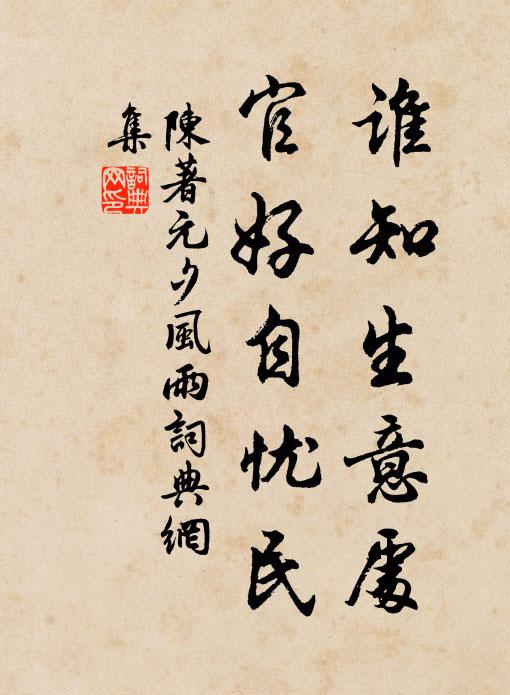 誰知生意處
官好自忧民
陳著元夕風雨詞典網
集
詞典
网印